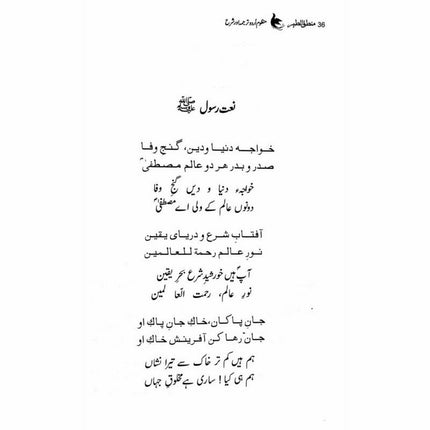 36 منطق الطیر منظوم اردو ترجمہ اور شرح
نعت رسول ﷺ
خواجه دنیا ودین، گنج وفا
صدر و بدر هر دو عالم مصطفیٰ
خواجۂ دنیا و دیں گنجِ وفا
دونوں عالم کے ولی اے مصطفیٰ
آفتاب شرع و دریای یقین
نور عالم رحمة للعالمین
آپ ہیں خورشیدِ شرع بحرِ یقین
نورِ عالم، رحمت اللعا لمین
جان پاکان، خاك جان پاك او
جان رها کن آفرینش خاك او
ہم ہیں کم تر خاک سے تیرا نشاں
ہم ہی کیا! ساری ہے مخلوقِ جہاں